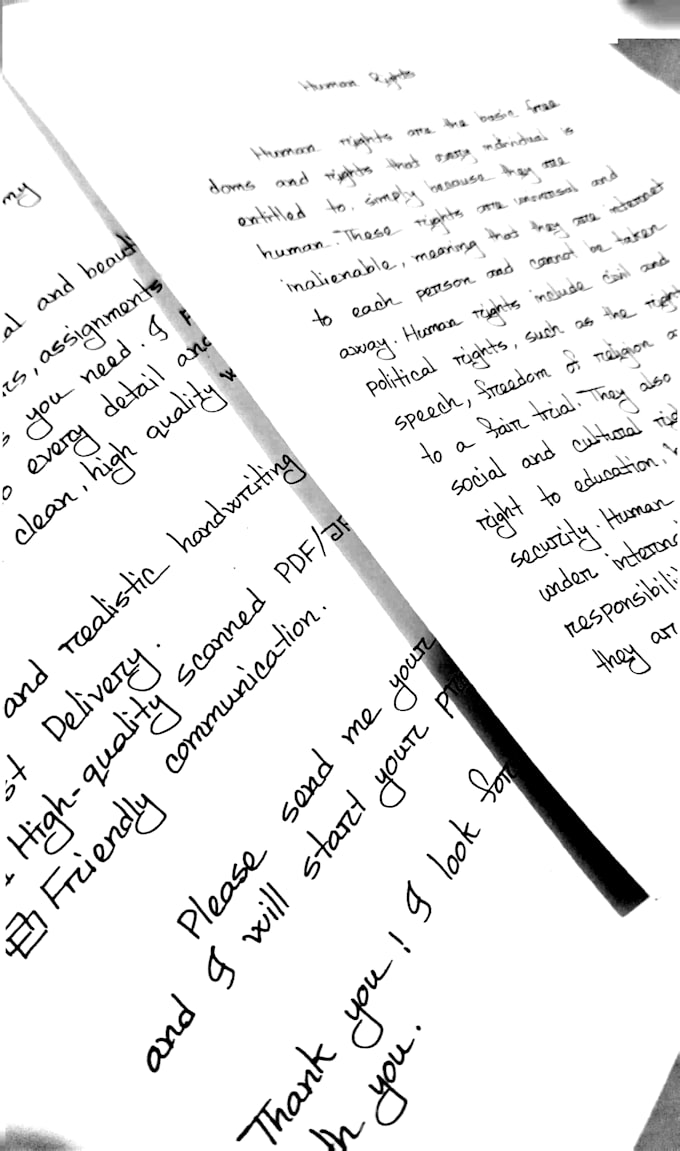 my
al and beauti
cs, assignments
s you need. I F
o every detail and
clean, high quality w
and realistic handwriting
st Delivery.
High-quality scanned PDF/JP
Friendly communication.
Please send me your
and I will start your pro
Thank you! I look for
th you.
Human Rights
Human rights are the basic free
doms and rights that every individual is
entitled to, simply because they are
human. These rights are universal and
inalienable, meaning that they are internet
to each person and cannot be taken
away. Human rights include civil and
political rights, such as the right
speech, freedom of religion a
to a fair trial. They also
social and cultural rig
right to education, h
security. Human
under interna
responsibili
they are